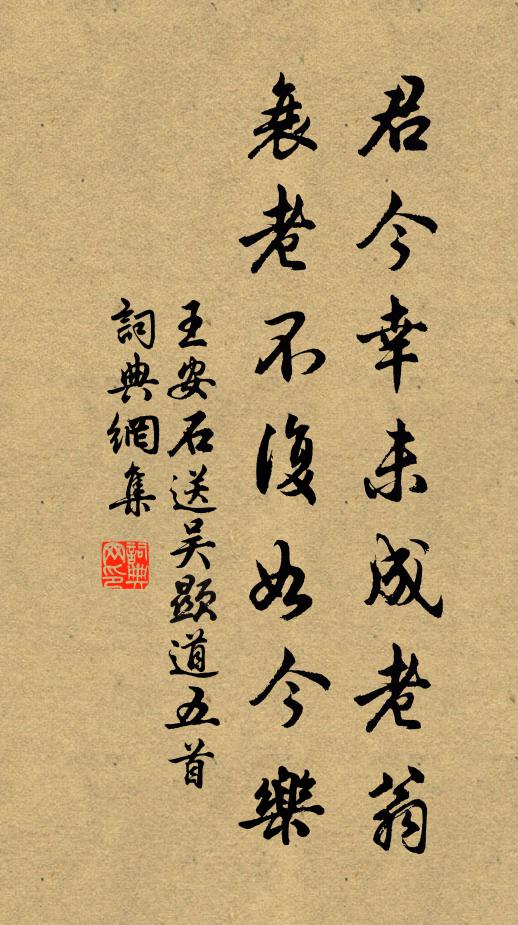 君今幸未成老翁
衰老不復如今樂
王安石送吴顯道五首
詞典網集
詞典
网印